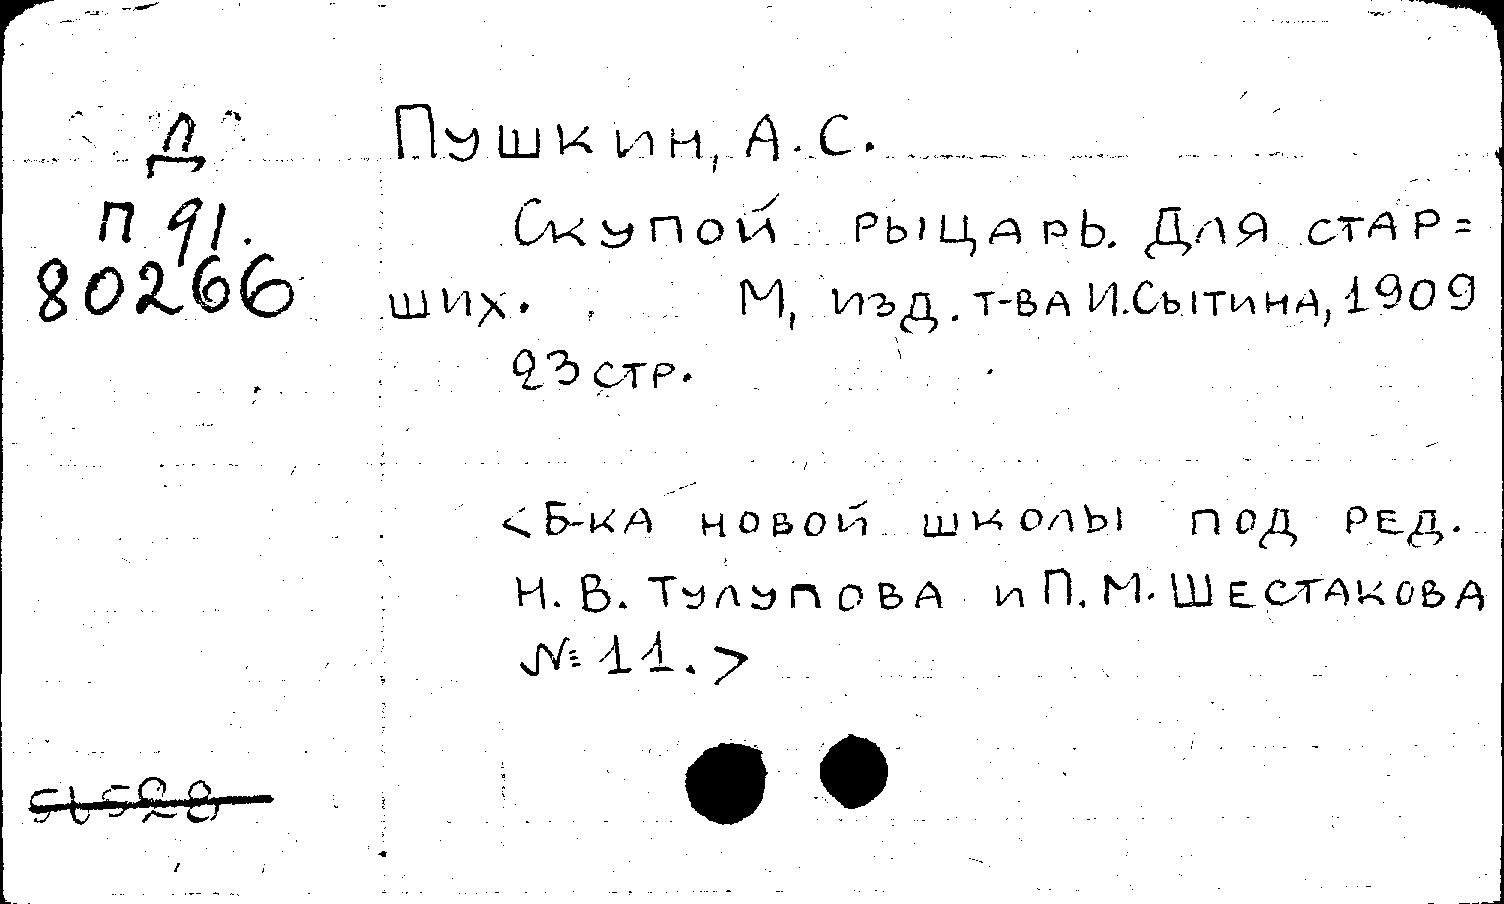 Д
П 91.
80266
Пушкин, А. С.
Скупой рыцарь. Для стар=
ших. М, изд. т-ва И.Сытина, 1909
23 стр.
<Б-ка новой школы под ред.
Н. В. Тулупова и П. М. Шестакова
№ 11.>